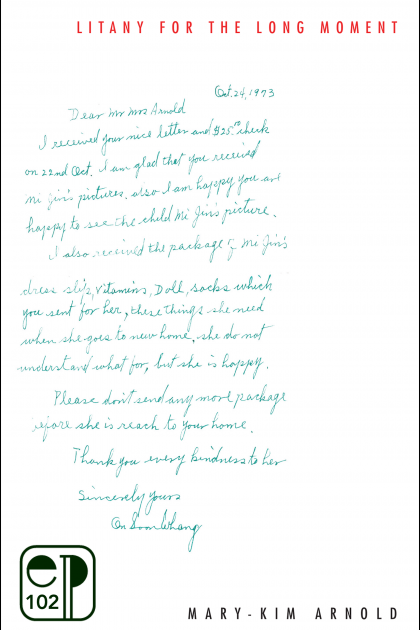 LITANY FOR THE LONG MOMENT
Oct. 24, 1973
Dear Mr Mrs Arnold
I received your nice letter and $25.00 check
on 22nd Oct. I am glad that you received
mi Jin's pictures. also I am happy you are
happy to see the child Mi Jin's picture.
I also received the package of Mi Jin's
dress slip, Vitamins, Doll, socks which
you sent for her, these things she need
when she goes to new home, she do not
understand what for, but she is happy.
Please don't send any more package
before she is reach to your home.
Thank you every kindness to her
Sincerely yours
On Soon Whang
ep
102
MARY-KIM ARNOLD